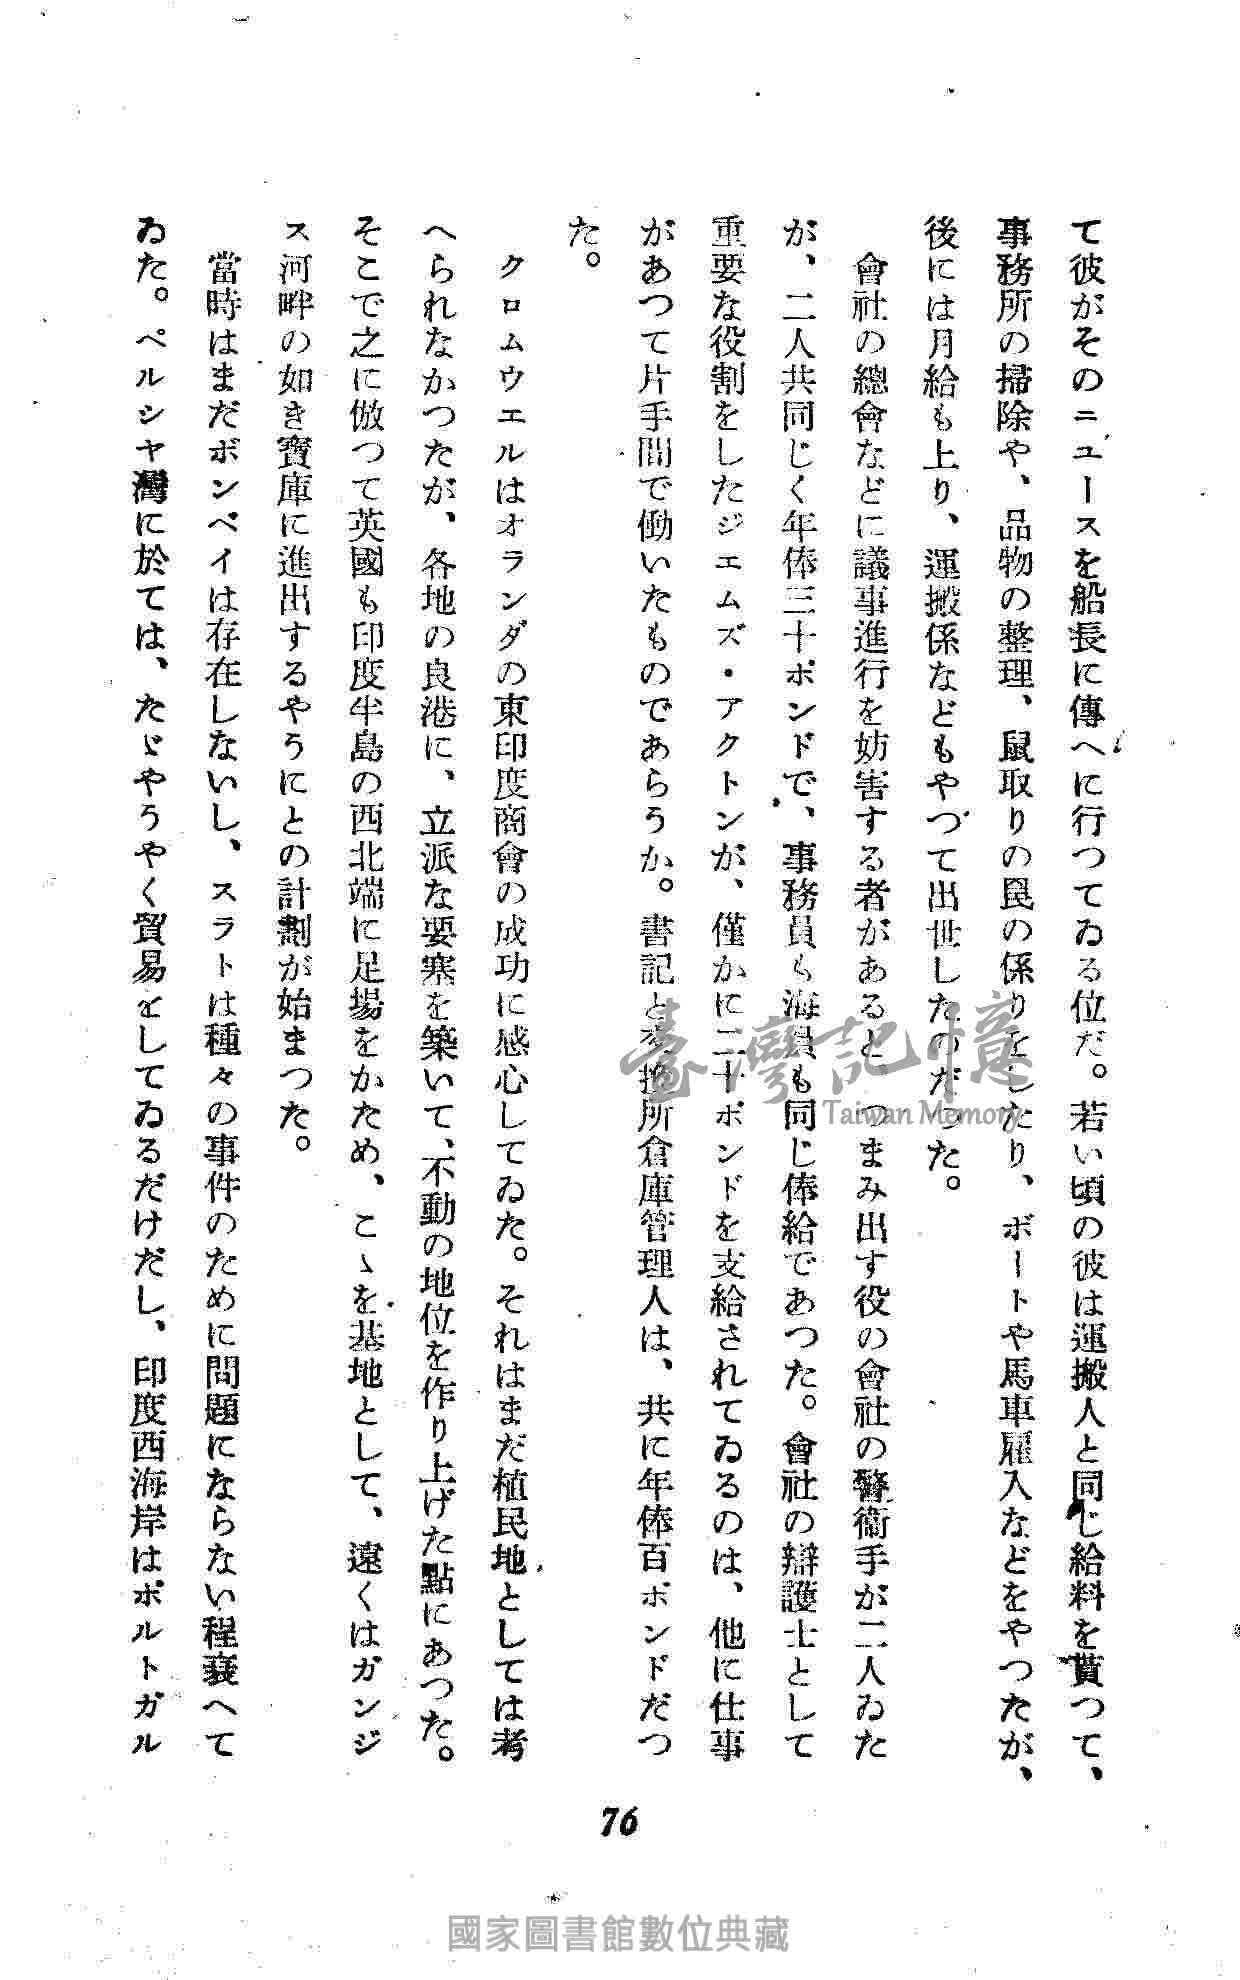 て彼がそのニュースを船長に傳へに行つてゐる位だ。若い頃の彼は運搬人と同じ給料を貰つて、
事務所の掃除や、品物の整理、鼠取りの罠の係りをしたり、ボートや馬車雇入などをやつたが、
後には月給も上り、運搬係などもやつて出世したのだつた。
會社の總會などに議事進行を妨害する者があると、つまみ出す役の會社の警衞手が二人ゐた
が、二人共同じく年俸三十ポンドで、事務員も海員も同じ俸給であつた。會社の辯護士として
重要な役割をしたジエムズ・アクトンが、僅かに二十ポンドを支給されてゐるのは、他に仕事
があつて片手間で働いたものであらうか。書記と交換所倉庫管理人は、共に年俸百ポンドだつ
た。
クロムウエルはオランダの東印度商會の成功に感心してゐた。それはまだ植民地としては考
へられなかつたが、各地の良港に、立派な要塞を築いて、不動の地位を作り上げた點にあつた。
そこで之に倣つて英國も印度半島の西北端に足場をかため、こゝを基地として、遠くはガンジ
ス河畔の如き寶庫に進出するやうにとの計劃が始まつた。
當時はまだボンベイは存在しないし、スラトは種々の事件のために問題にならない程衰へて
ゐた。ペルシヤ灣に於ては、たゞやうやく貿易をしてゐるだけだし、印度西海岸はポルトガル
76
臺灣記憶
Taiwan Memory
國家圖書館數位典藏